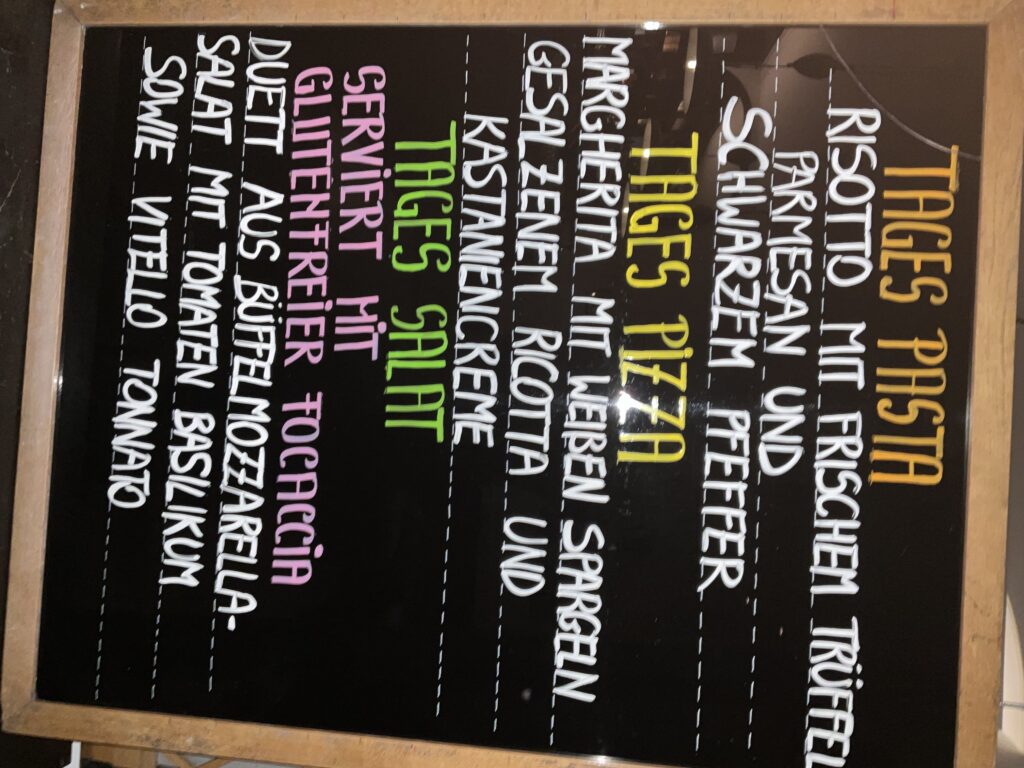 TAGES PASTA
RISOTTO MIT FRISCHEM TRÜFFEL
PARMESAN UND
SCHWARZEM PFEFFER
TAGES PIZZA
MARGHERITA MIT WEIßEN SPARGELN
GESALZENEM RICOTTA UND
KASTANIENCREME
TAGES SALAT
SERVIERT MIT
GLUTENFREIER FOCACCIA
DUETT AUS BÜFFELMOZZARELLA-
SALAT MIT TOMATEN BASILIKUM
SOWIE VITELLO TONNATO